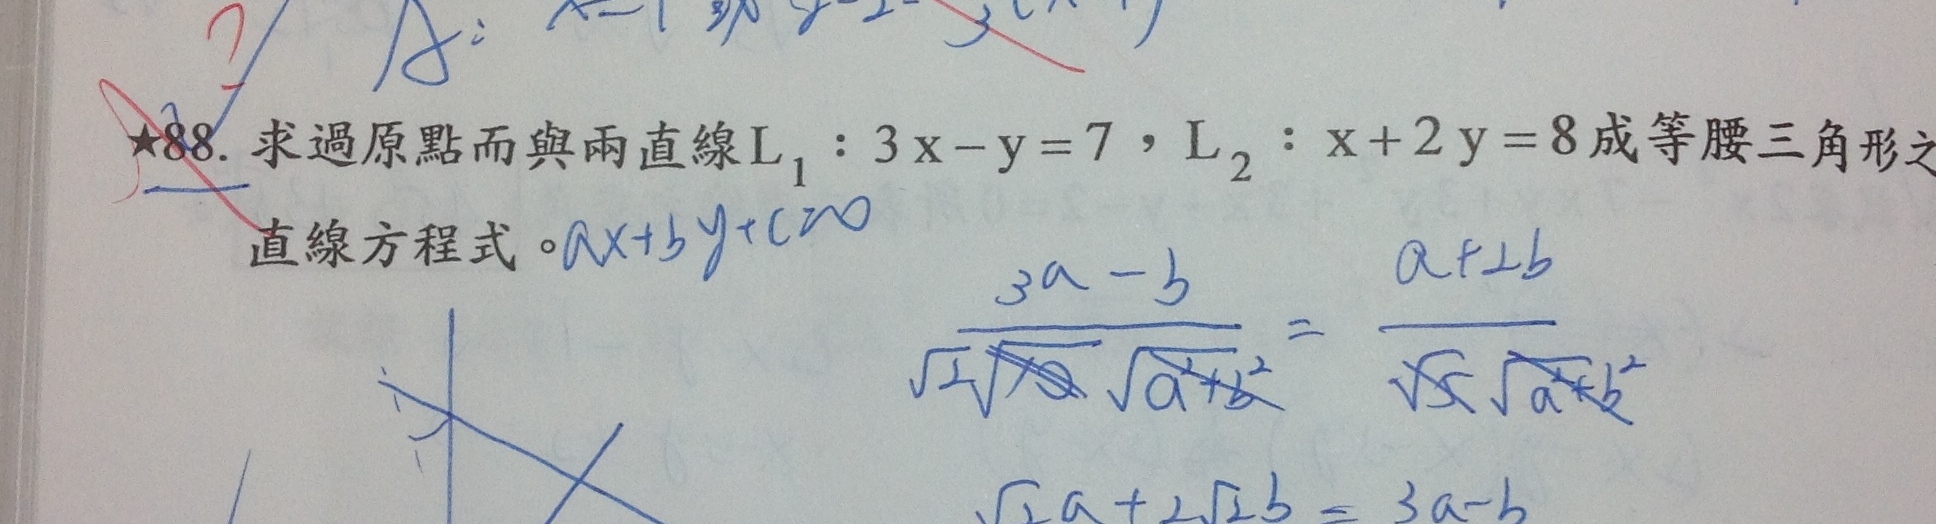 A: x=1 或 y-2=
★88. 求過原點而與兩直線L₁:3x-y=7,L₂:x+2y=8成等腰三角形之
直線方程式。ax+by+c=0
3a-b / √2√10 √a²+b² = a+2b / √5 √a²+b²
√2a+2√2b = 3a-b